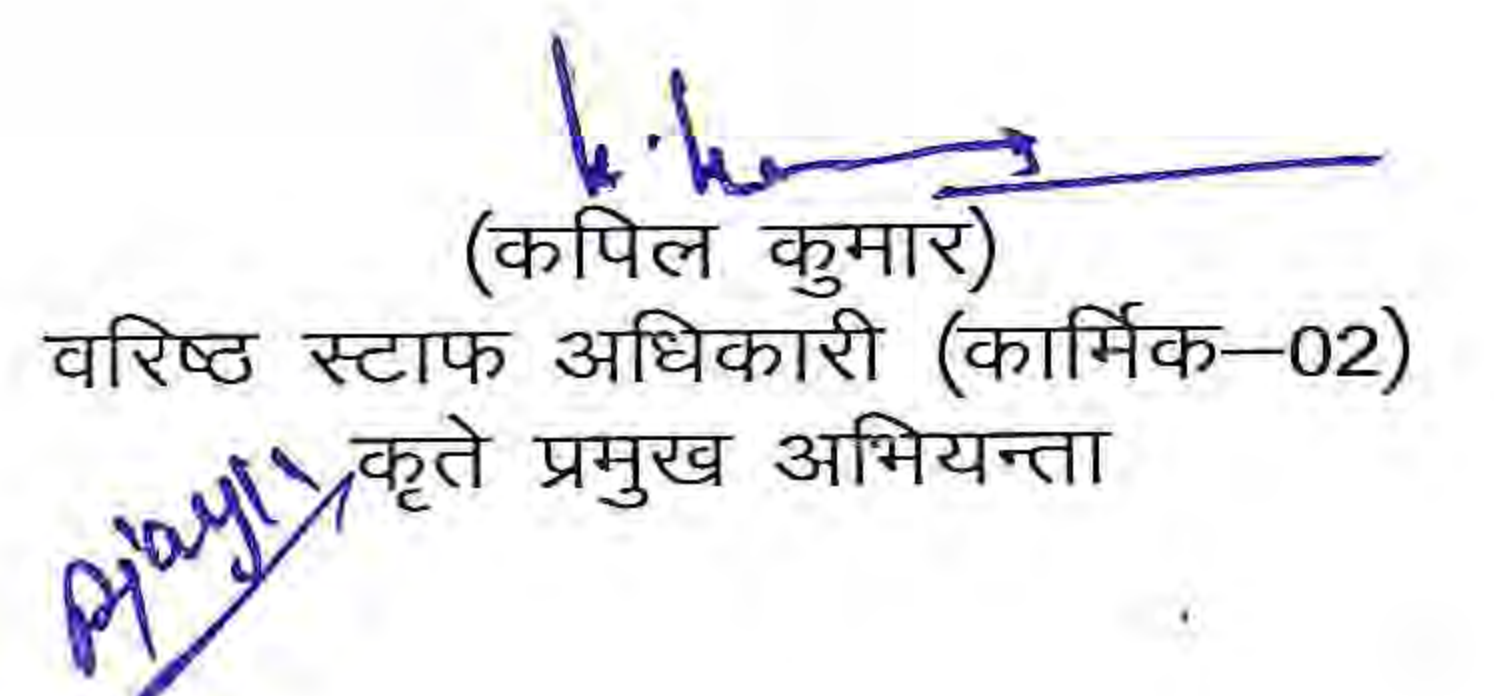 (कपिल कुमार)
वरिष्ठ स्टाफ अधिकारी (कार्मिक–02)
कृते प्रमुख अभियन्ता
Ajay